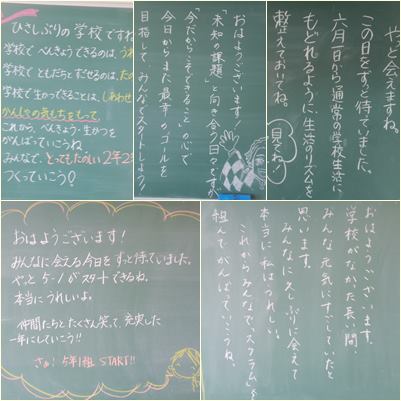 ひさしぶりの学校ですね
学校で べんきょうできるのは、うれ
学校で ともだちとすごせるのは、たの
学校で 生かつできることは、しあわせ
かんしゃの気もちをもって、
これから、べんきょう・生かつを
がんばっていこうね
みんなで、とってもたのしい2年2
つくっていこう!
おはようございます!
「未知の課題」と向き合う日々ですが
「今だからこそできること」の心で
今日からまた最幸のゴールを
目指して、みんなでスタートしよう!
やっと会えますね。
この日をずっと待っていました。
六月一日から通常の学校生活に
もどれるように、生活のリズムを
整えておいてね。
おはようございます!
みんなに会える今日をずっと待っていました。
やっと 5-1が スタートできるね。
本当にうれしいよ。
仲間たちとたくさん笑って、充実した
一年にしていこう!!
さぁ! 5年1組 START!!
おはようございます。
学校がなかった長い間、
みんな元気にすごしていたと
思います。
みんなに久しぶりに会えて
本当に私はうれしい。
これからみんなで、"スクラム"を
組んでがんばっていこうね。